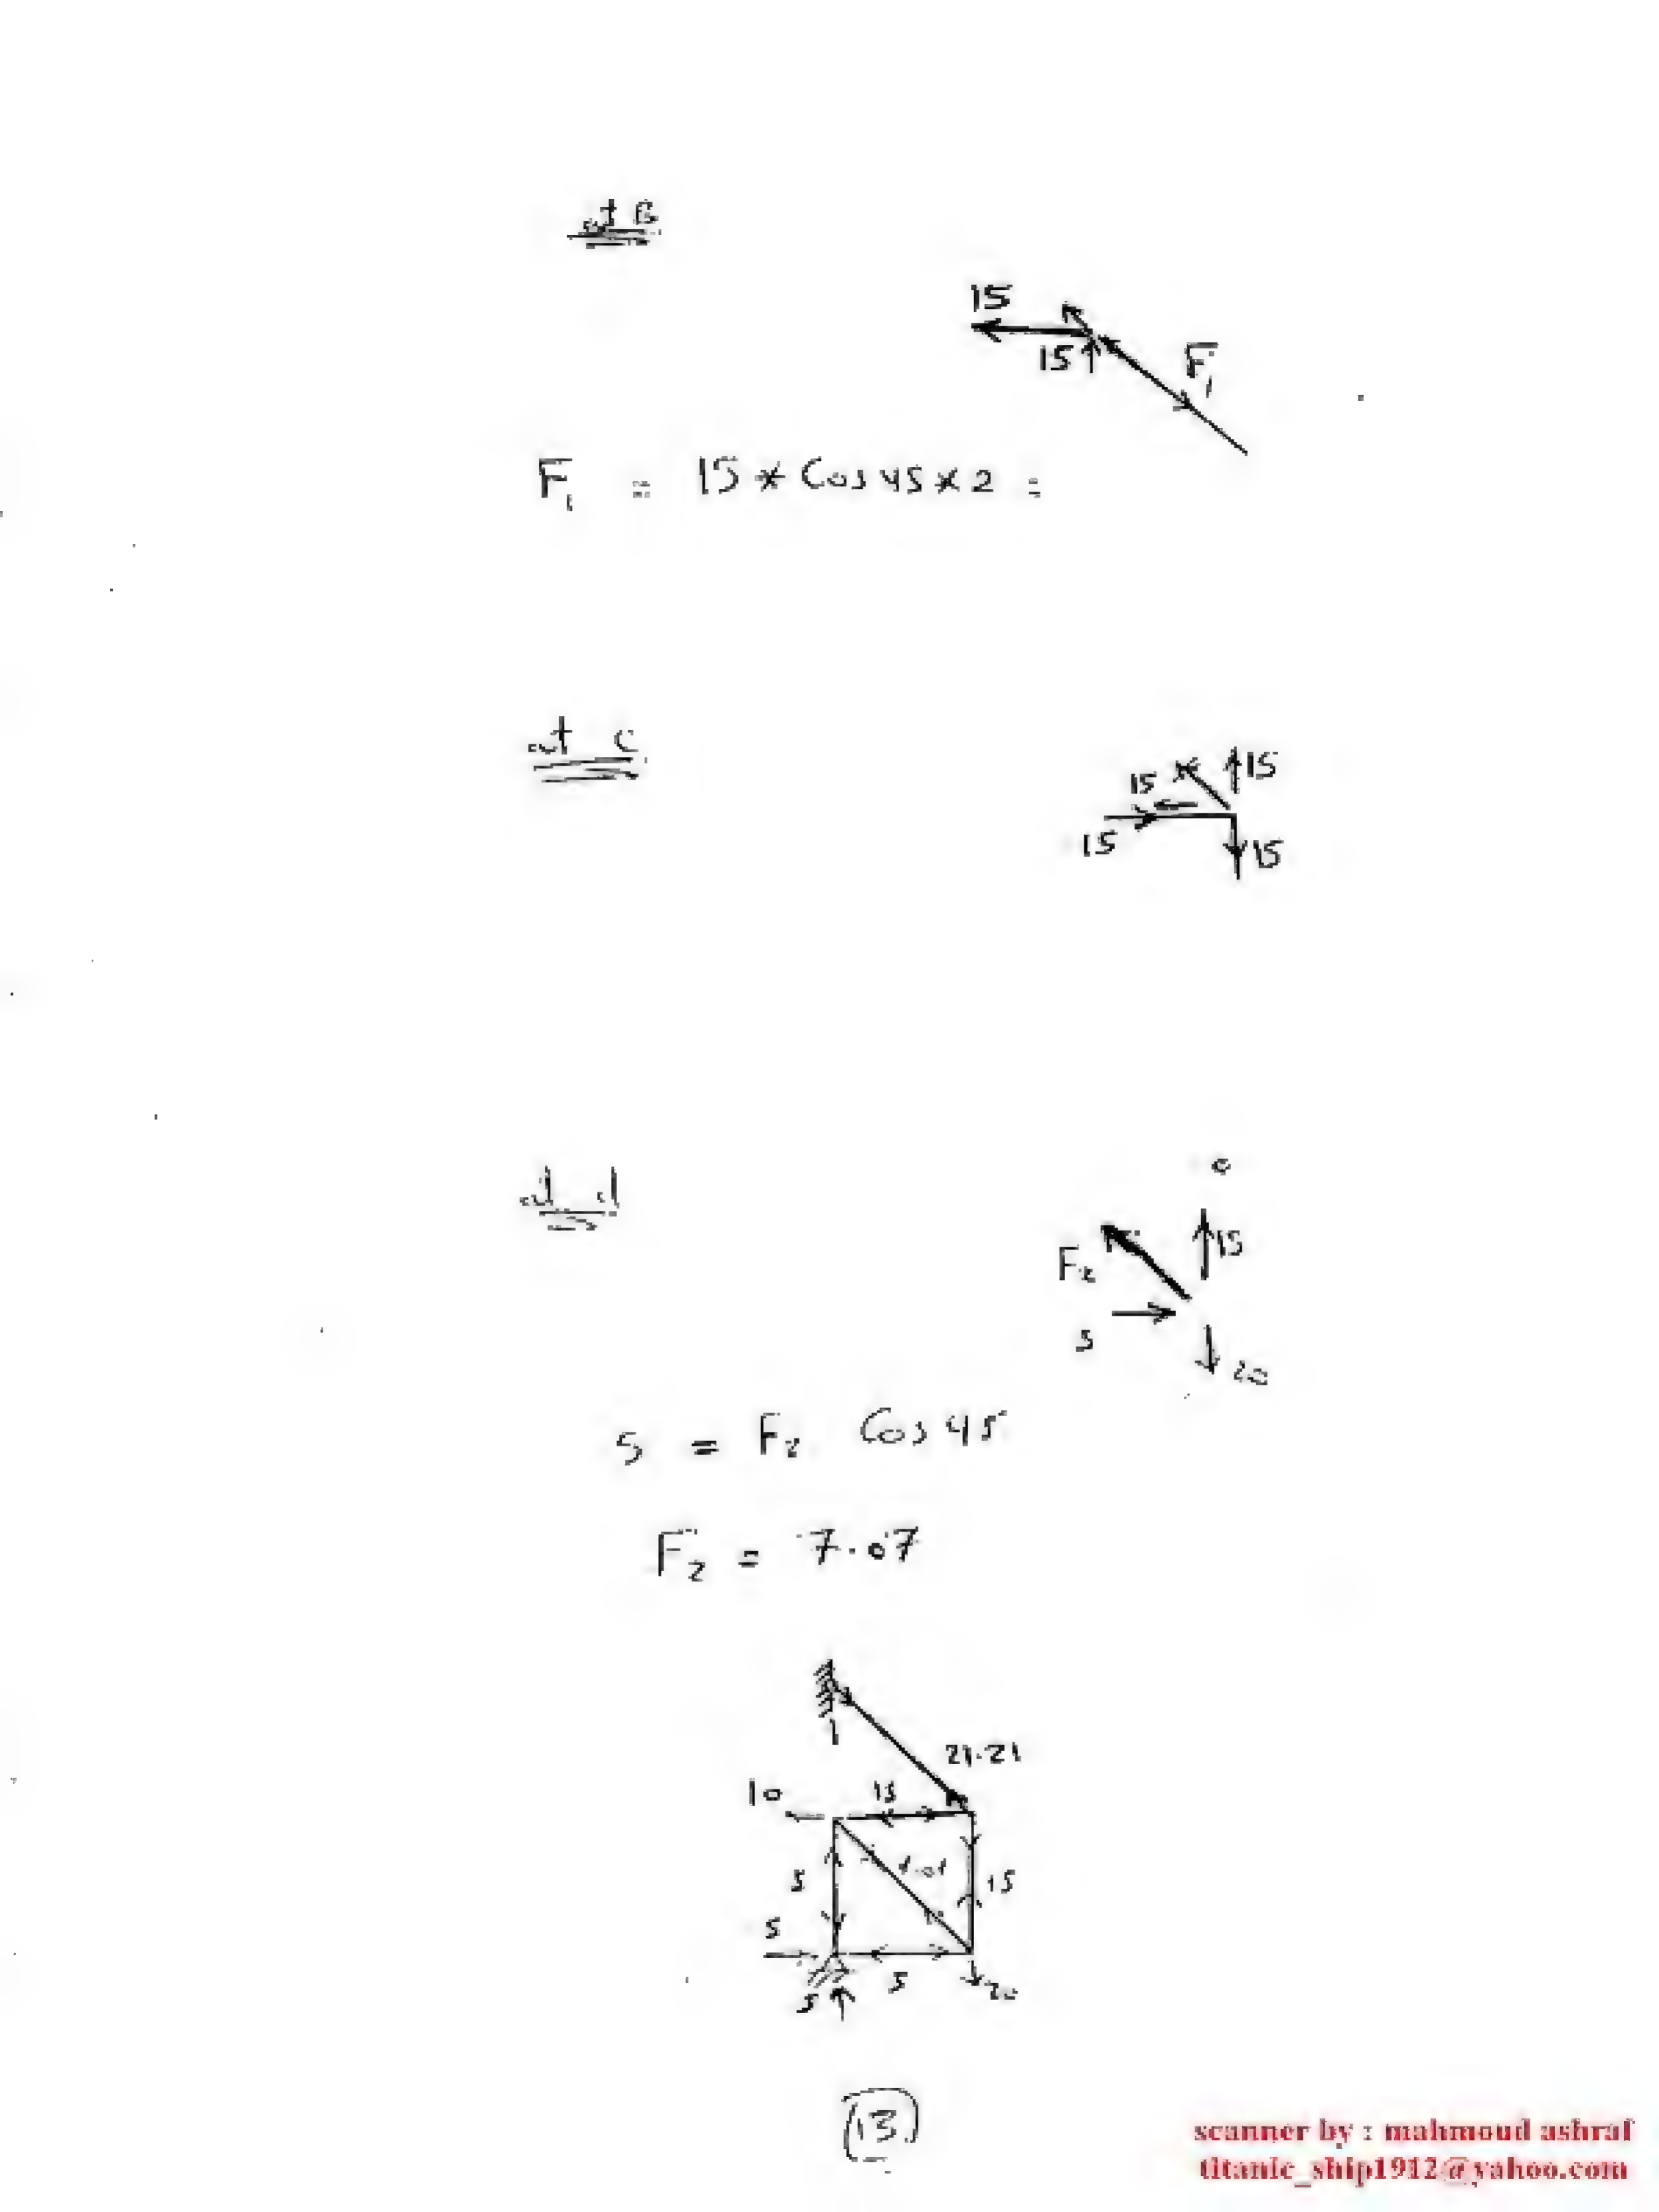 at B
15
15
F1
F1 = 15 * Cos 45 * 2 =
at C
15
15
15
15
at d
15
F2
5
20
5 = F2 Cos 45
F2 = 7.07
21.21
10
15
5
15
5
5
20
5
(13)
scanner by : mahmoud ashraf
titanic_ship1912@yahoo.com